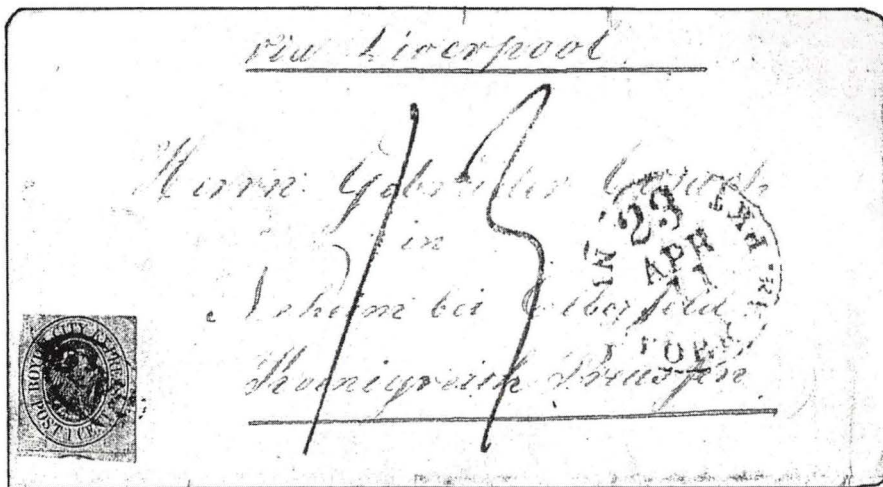 via Liverpool
13
Herrn Gebrüder
in
bei Elberfeld
Koenigreich Preussen
23
APR
11
BOYD'S CITY EXPRESS
POST 1 CENT